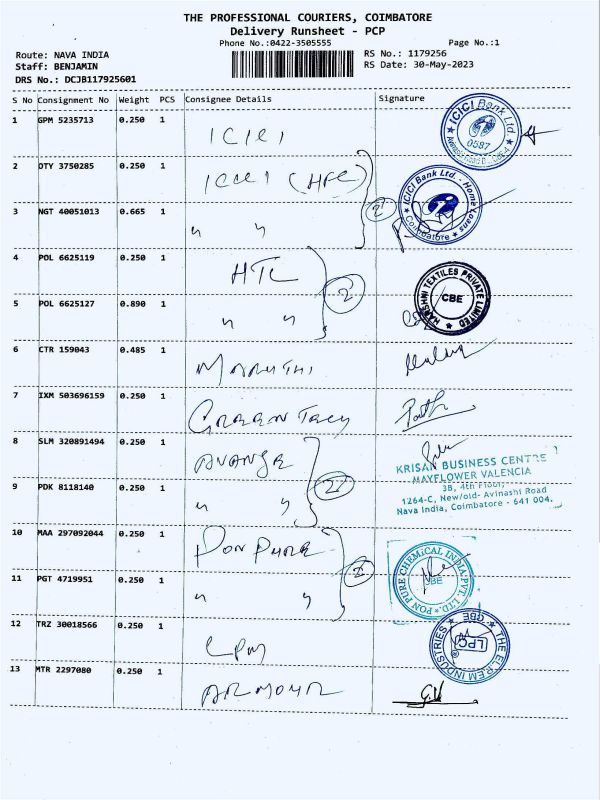 THE PROFESSIONAL COURIERS, COIMBATORE
Delivery Runsheet - PCP
Phone No.:0422-3505555
Page No.:1
Route: NAVA INDIA
RS No.: 1179256
Staff: BENJAMIN
RS Date: 30-May-2023
DRS No.: DCJB117925601
S No Consignment No Weight PCS Consignee Details Signature
1 GPM 5235713 0.250 1 ICICI
ICICI Bank Ltd
0587
2 DTY 3750285 0.250 1 ICICI (HFC)
2
ICICI Bank Ltd. - Home Loans
Coimbatore
3 NGT 40051013 0.665 1 " "
4 POL 6625119 0.250 1 HTL
2
HARSHNI TEXTILES PRIVATE LIMITED
CBE
5 POL 6625127 0.890 1 " "
6 CTR 159043 0.485 1 MARUTHI
7 IXM 503696159 0.250 1 GREEN TREY
8 SLM 320891494 0.250 1 AVANSE
2
KRISAN BUSINESS CENTRE
MAYFLOWER VALENCIA
3B, 4th Floor,
1264-C, New/old- Avinashi Road
Nava India, Coimbatore - 641 004.
9 PDK 8118140 0.250 1 " "
10 MAA 297092044 0.250 1 PON PURE
2
PON PURE CHEMICAL INDIA PVT. LTD.
CBE
11 PGT 4719951 0.250 1 " "
12 TRZ 30018566 0.250 1 LPM
THE EL.P.EM INDUSTRIES
CBE
LPC
13 MTR 2297080 0.250 1 ARMOUR